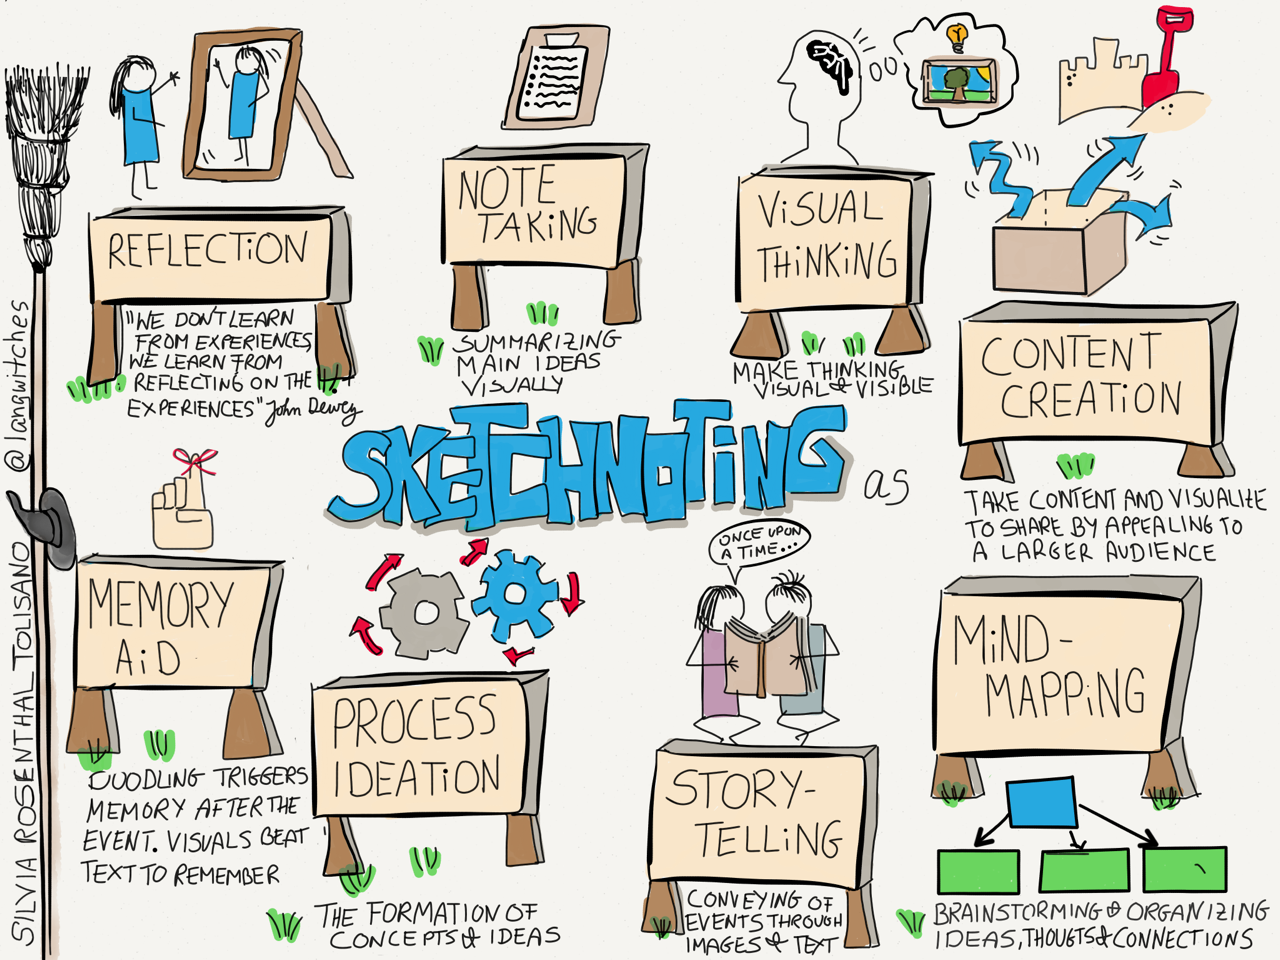 REFLECTiON
"WE DON'T LEARN
FROM EXPERIENCES,
WE LEARN FROM
REFLECTING ON THE
EXPERIENCES" John Dewey
NOTE
TAKiNG
SUMMARIZING
MAIN IDEAS
VISUALLY
ViSUAL
THiNKiNG
MAKE THINKING
VISUAL & VISIBLE
CONTENT
CREATiON
TAKE CONTENT AND VISUALIZE
TO SHARE BY APPEALING TO
A LARGER AUDIENCE
SKETCHNOTiNG
as
MEMORY
AiD
DOODLING TRIGGERS
MEMORY AFTER THE
EVENT. VISUALS BEAT
TEXT TO REMEMBER
PROCESS
IDEATiON
THE FORMATION OF
CONCEPTS & IDEAS
ONCE UPON
A TIME...
STORY-
TELLiNG
CONVEYING OF
EVENTS THROUGH
IMAGES & TEXT
MiND-
MAPPiNG
BRAINSTORMING & ORGANIZING
IDEAS, THOUGTS & CONNECTIONS
SILVIA ROSENTHAL TOLISANO @langwitches